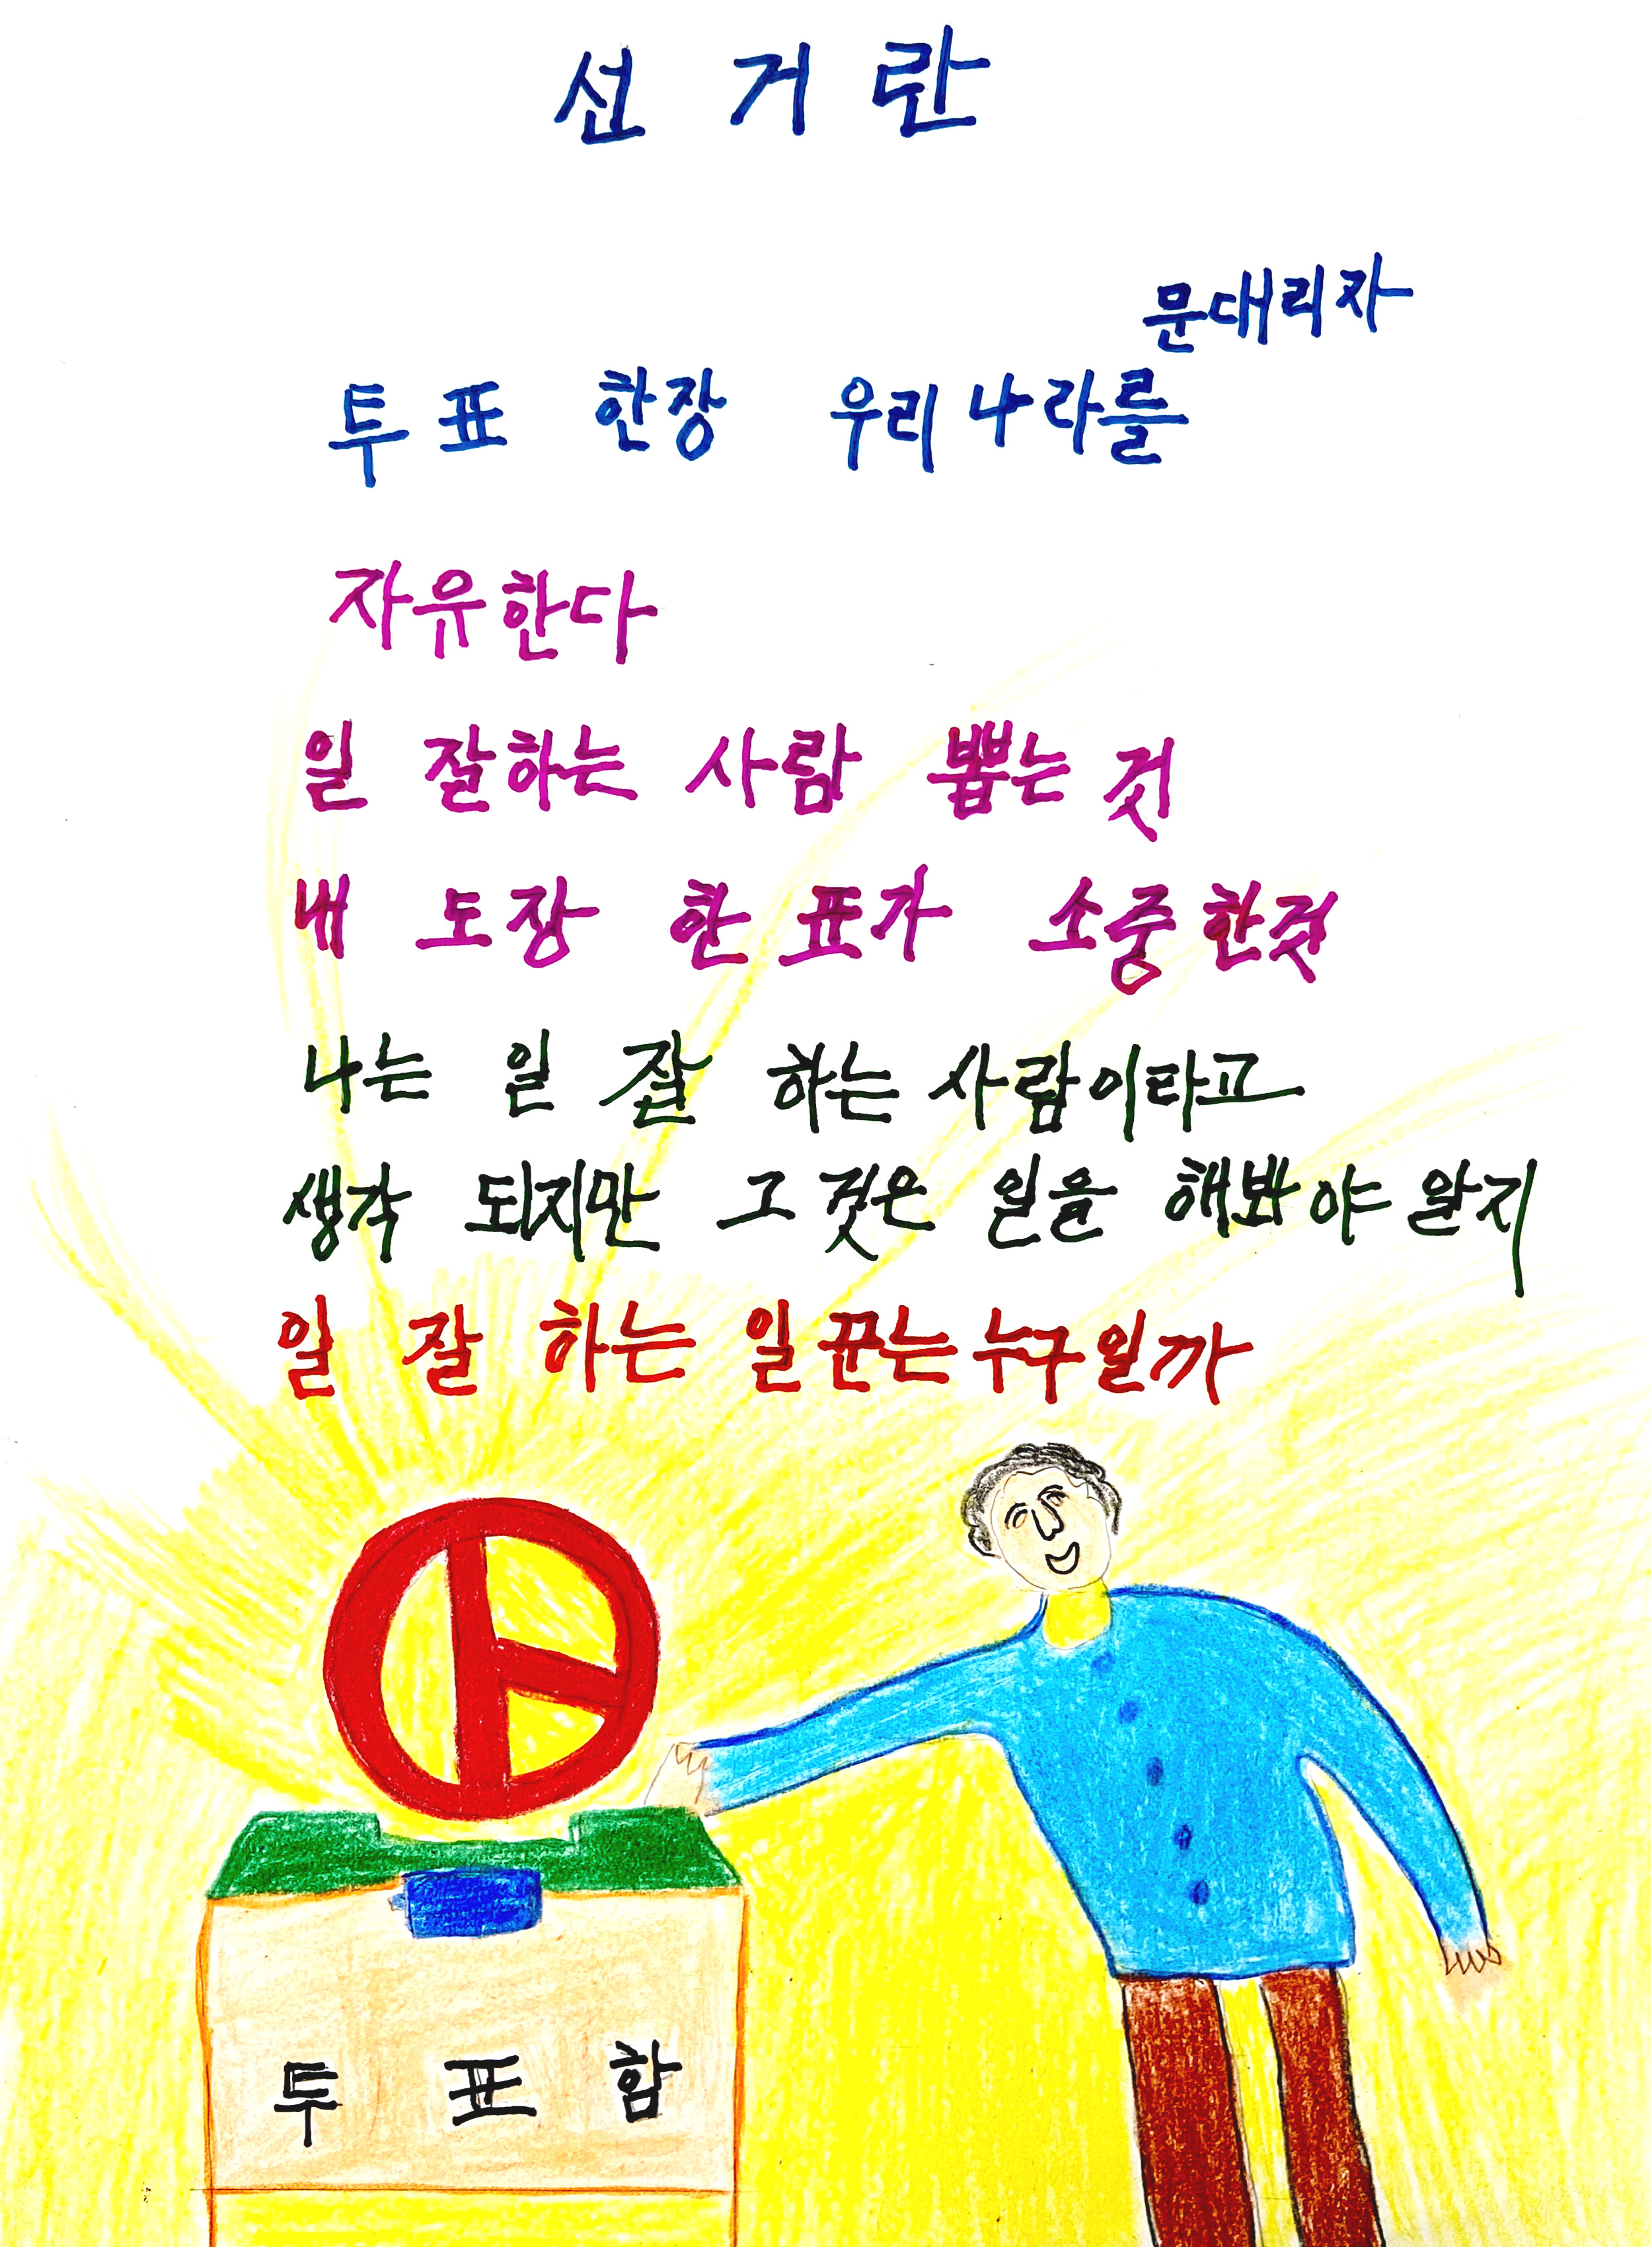 선 거 란
문대리자
투표 한장 우리나라를
자유한다
일 잘하는 사람 뽑는 것
내 도장 한 표가 소중한것
나는 일 잘 하는 사람이라고
생각 되지만 그것은 일을 해봐야 알지
일 잘 하는 일꾼는 누구일까
투 표 함